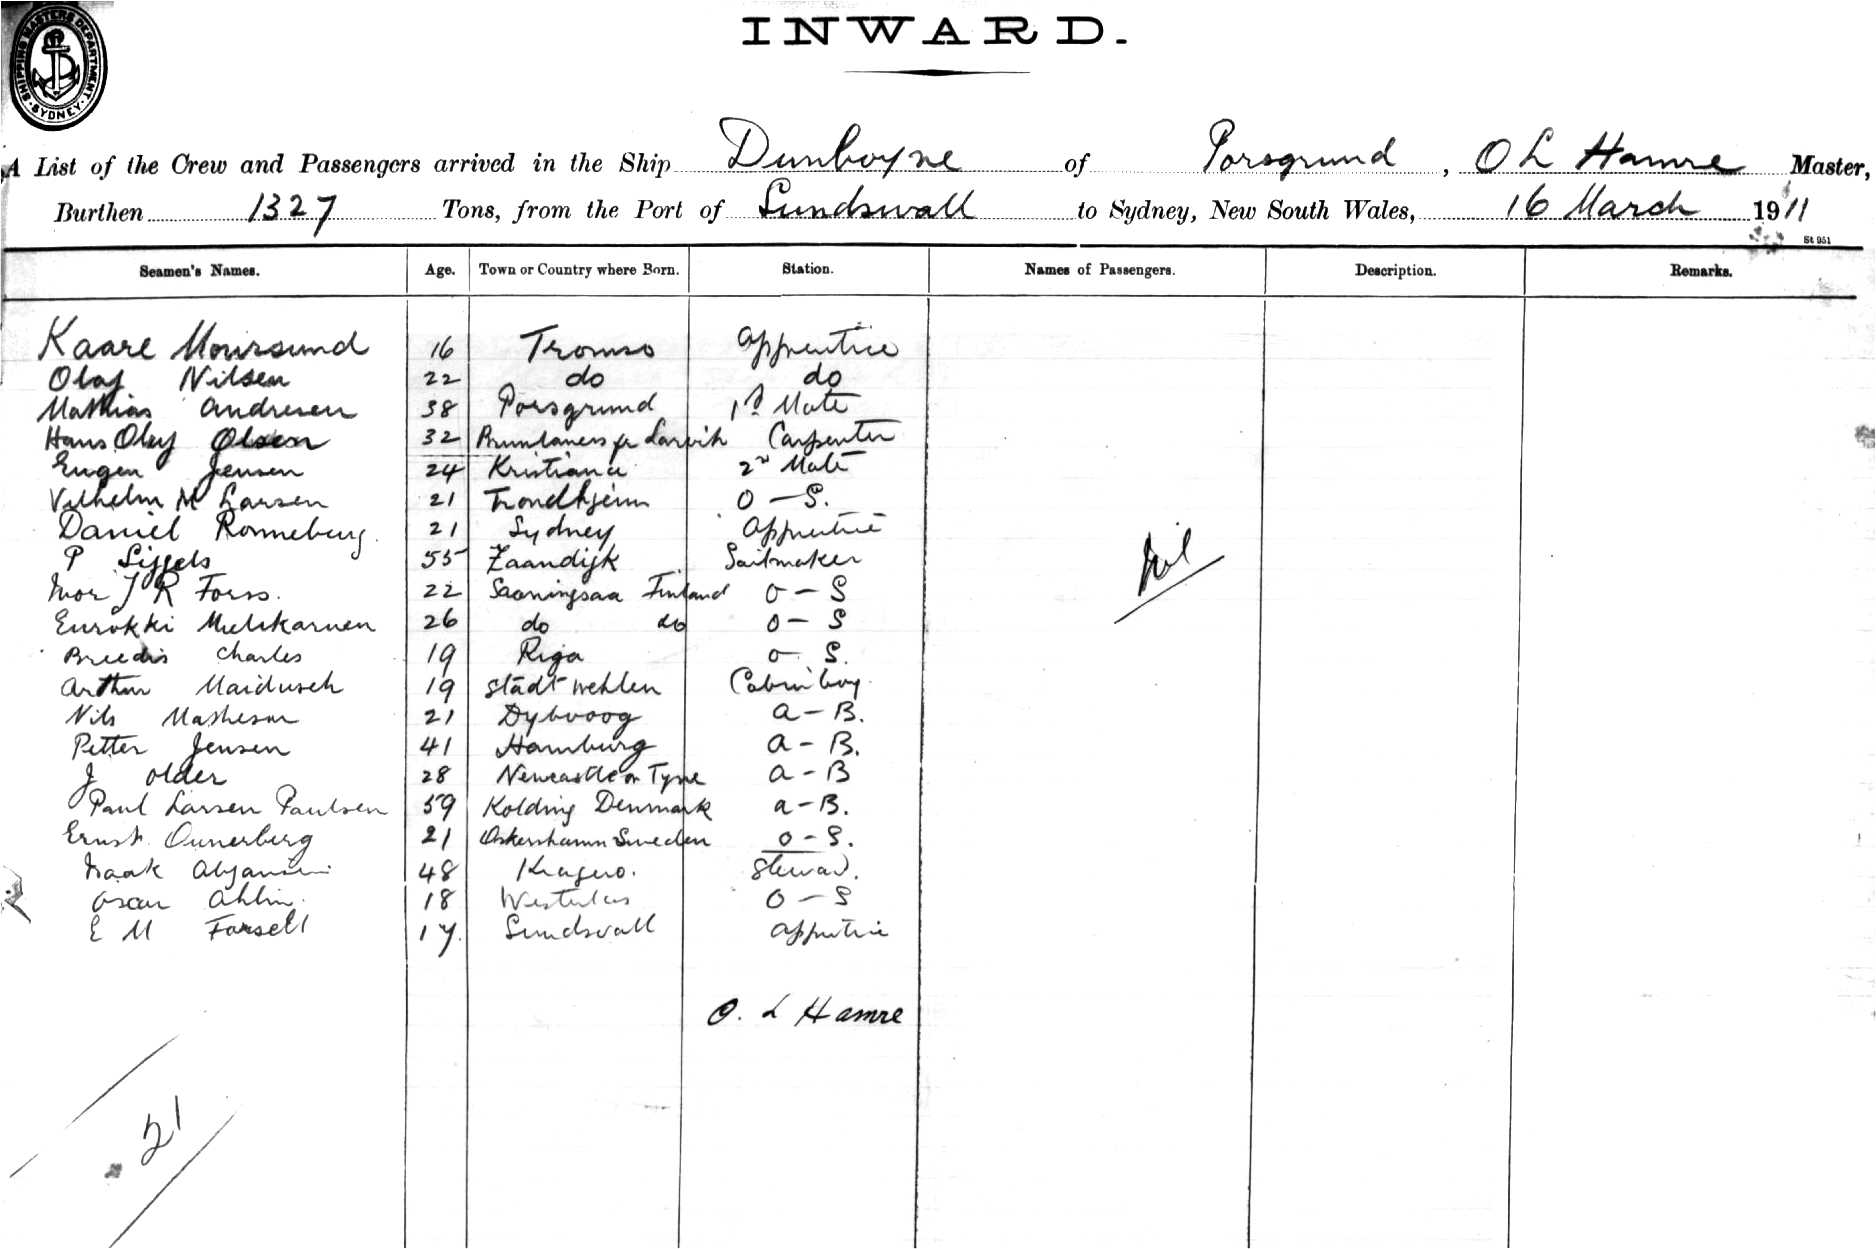 SHIPPING MASTERS DEPARTMENT · SYDNEY ·
INWARD.
A List of the Crew and Passengers arrived in the Ship Dunboyne of Porsgrund, O L Hamre Master,
Burthen 1327 Tons, from the Port of Sundswall to Sydney, New South Wales, 16 March 1911
St 951
Seamen's Names. Age. Town or Country where Born. Station. Names of Passengers. Description. Remarks.
Kaare Moursund 16 Tromso apprentice
Olaf Nilsen 22 do do
Mathias Andresen 38 Porsgrund 1st Mate
Hans Olaf Olsen 32 Larvik Carpenter
Eugen Jensen 24 Kristiania 2nd Mate
Vilhelm M Larsen 21 Trondhjem O - S.
Daniel Ronneburg. 21 Sydney apprentice
P 55 Zaandijk Sailmaker
Nil
Ivor J R Forss. 22 Finland O - S
26 do do O - S
Breedis Charles 19 Riga O S.
Arthur Maidusch 19 Stadt Wehlen Cabin boy.
Nils Matheson 21 Dybvoog A - B.
Petter Jensen 41 Hamburg A - B.
J older 28 Newcastle on Tyne A - B
Paul Larsen Paulsen 59 Kolding Denmark A - B.
Ernst 21 Oskershamn Sweden O - S.
Isaak 48 Kragero. Steward.
Oscar Ahlin. 18 O - S
E M Forsell 17. Sundsvall apprentice
O. L Hamre
21